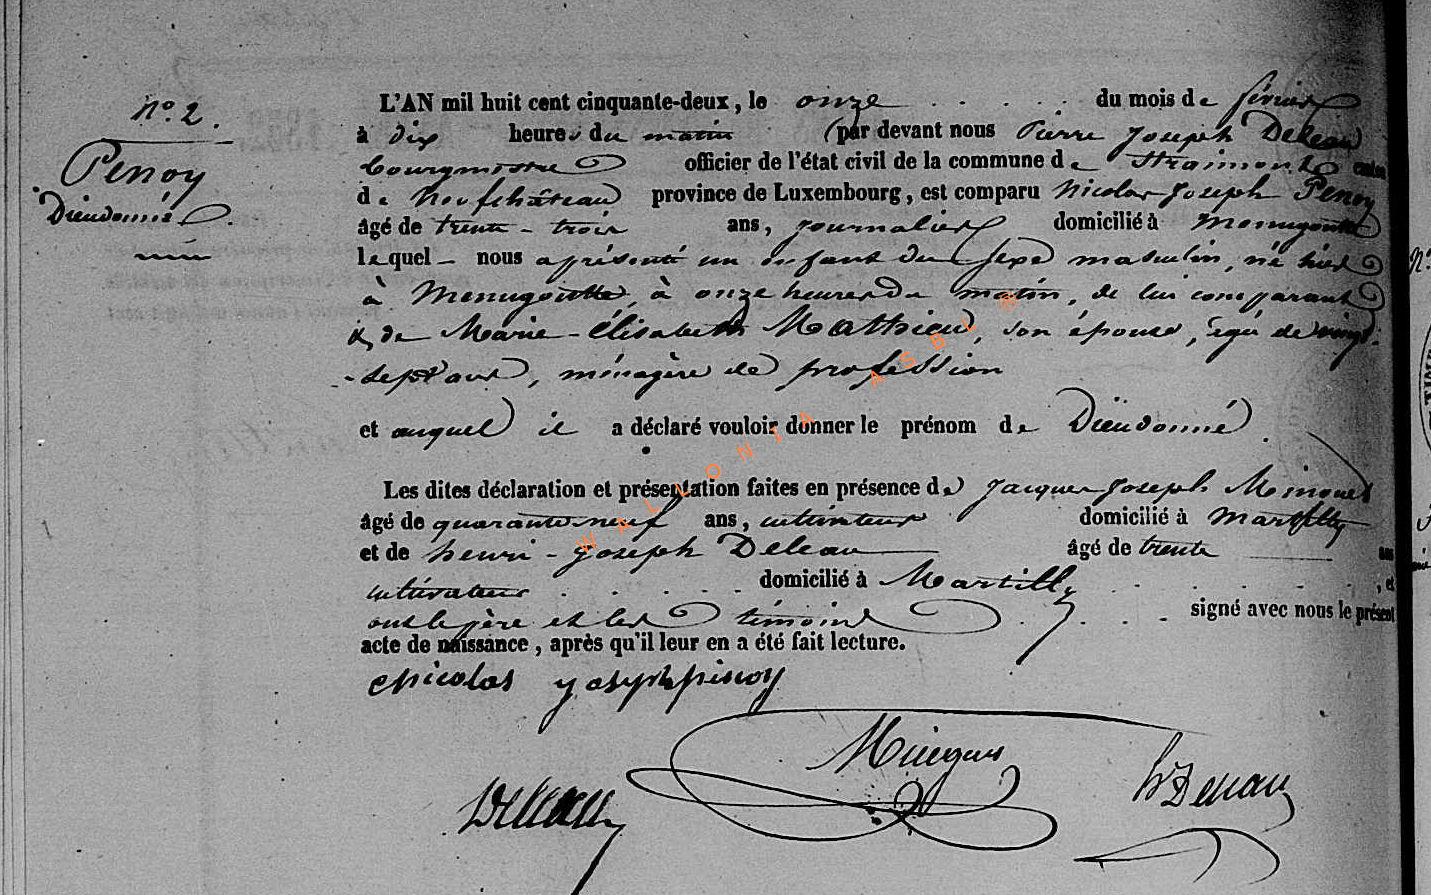 N° 2.
Penoy
Dieudonné
L'AN mil huit cent cinquante-deux, le onze du mois de février
à dix heures du matin par devant nous Pierre Joseph Deleau
bourgmestre officier de l'état civil de la commune de Straimont canton
de Neufchâteau province de Luxembourg, est comparu Nicolas Joseph Penoy
âgé de trente-trois ans, journalier domicilié à Menugoutte
lequel nous a présenté un enfant du sexe masculin, né hier
à Menugoutte, à onze heures du matin, de lui comparant
& de Marie-Élisabeth Mathieu, son épouse, agée de vingt-
-sept ans, ménagère de profession
et auquel il a déclaré vouloir donner le prénom de Dieudonné.
Les dites déclaration et présentation faites en présence de Jacques Joseph
âgé de quarante-neuf ans, cultivateur domicilié à Martilly
et de henri-Joseph Deleau âgé de trente ans
cultivateur domicilié à Martilly, et
ont le père et les témoins signé avec nous le présent
acte de naissance, après qu'il leur en a été fait lecture.
Nicolas joseph penoy
Deleau
hj Deleau
WALLONIA ASBL ©